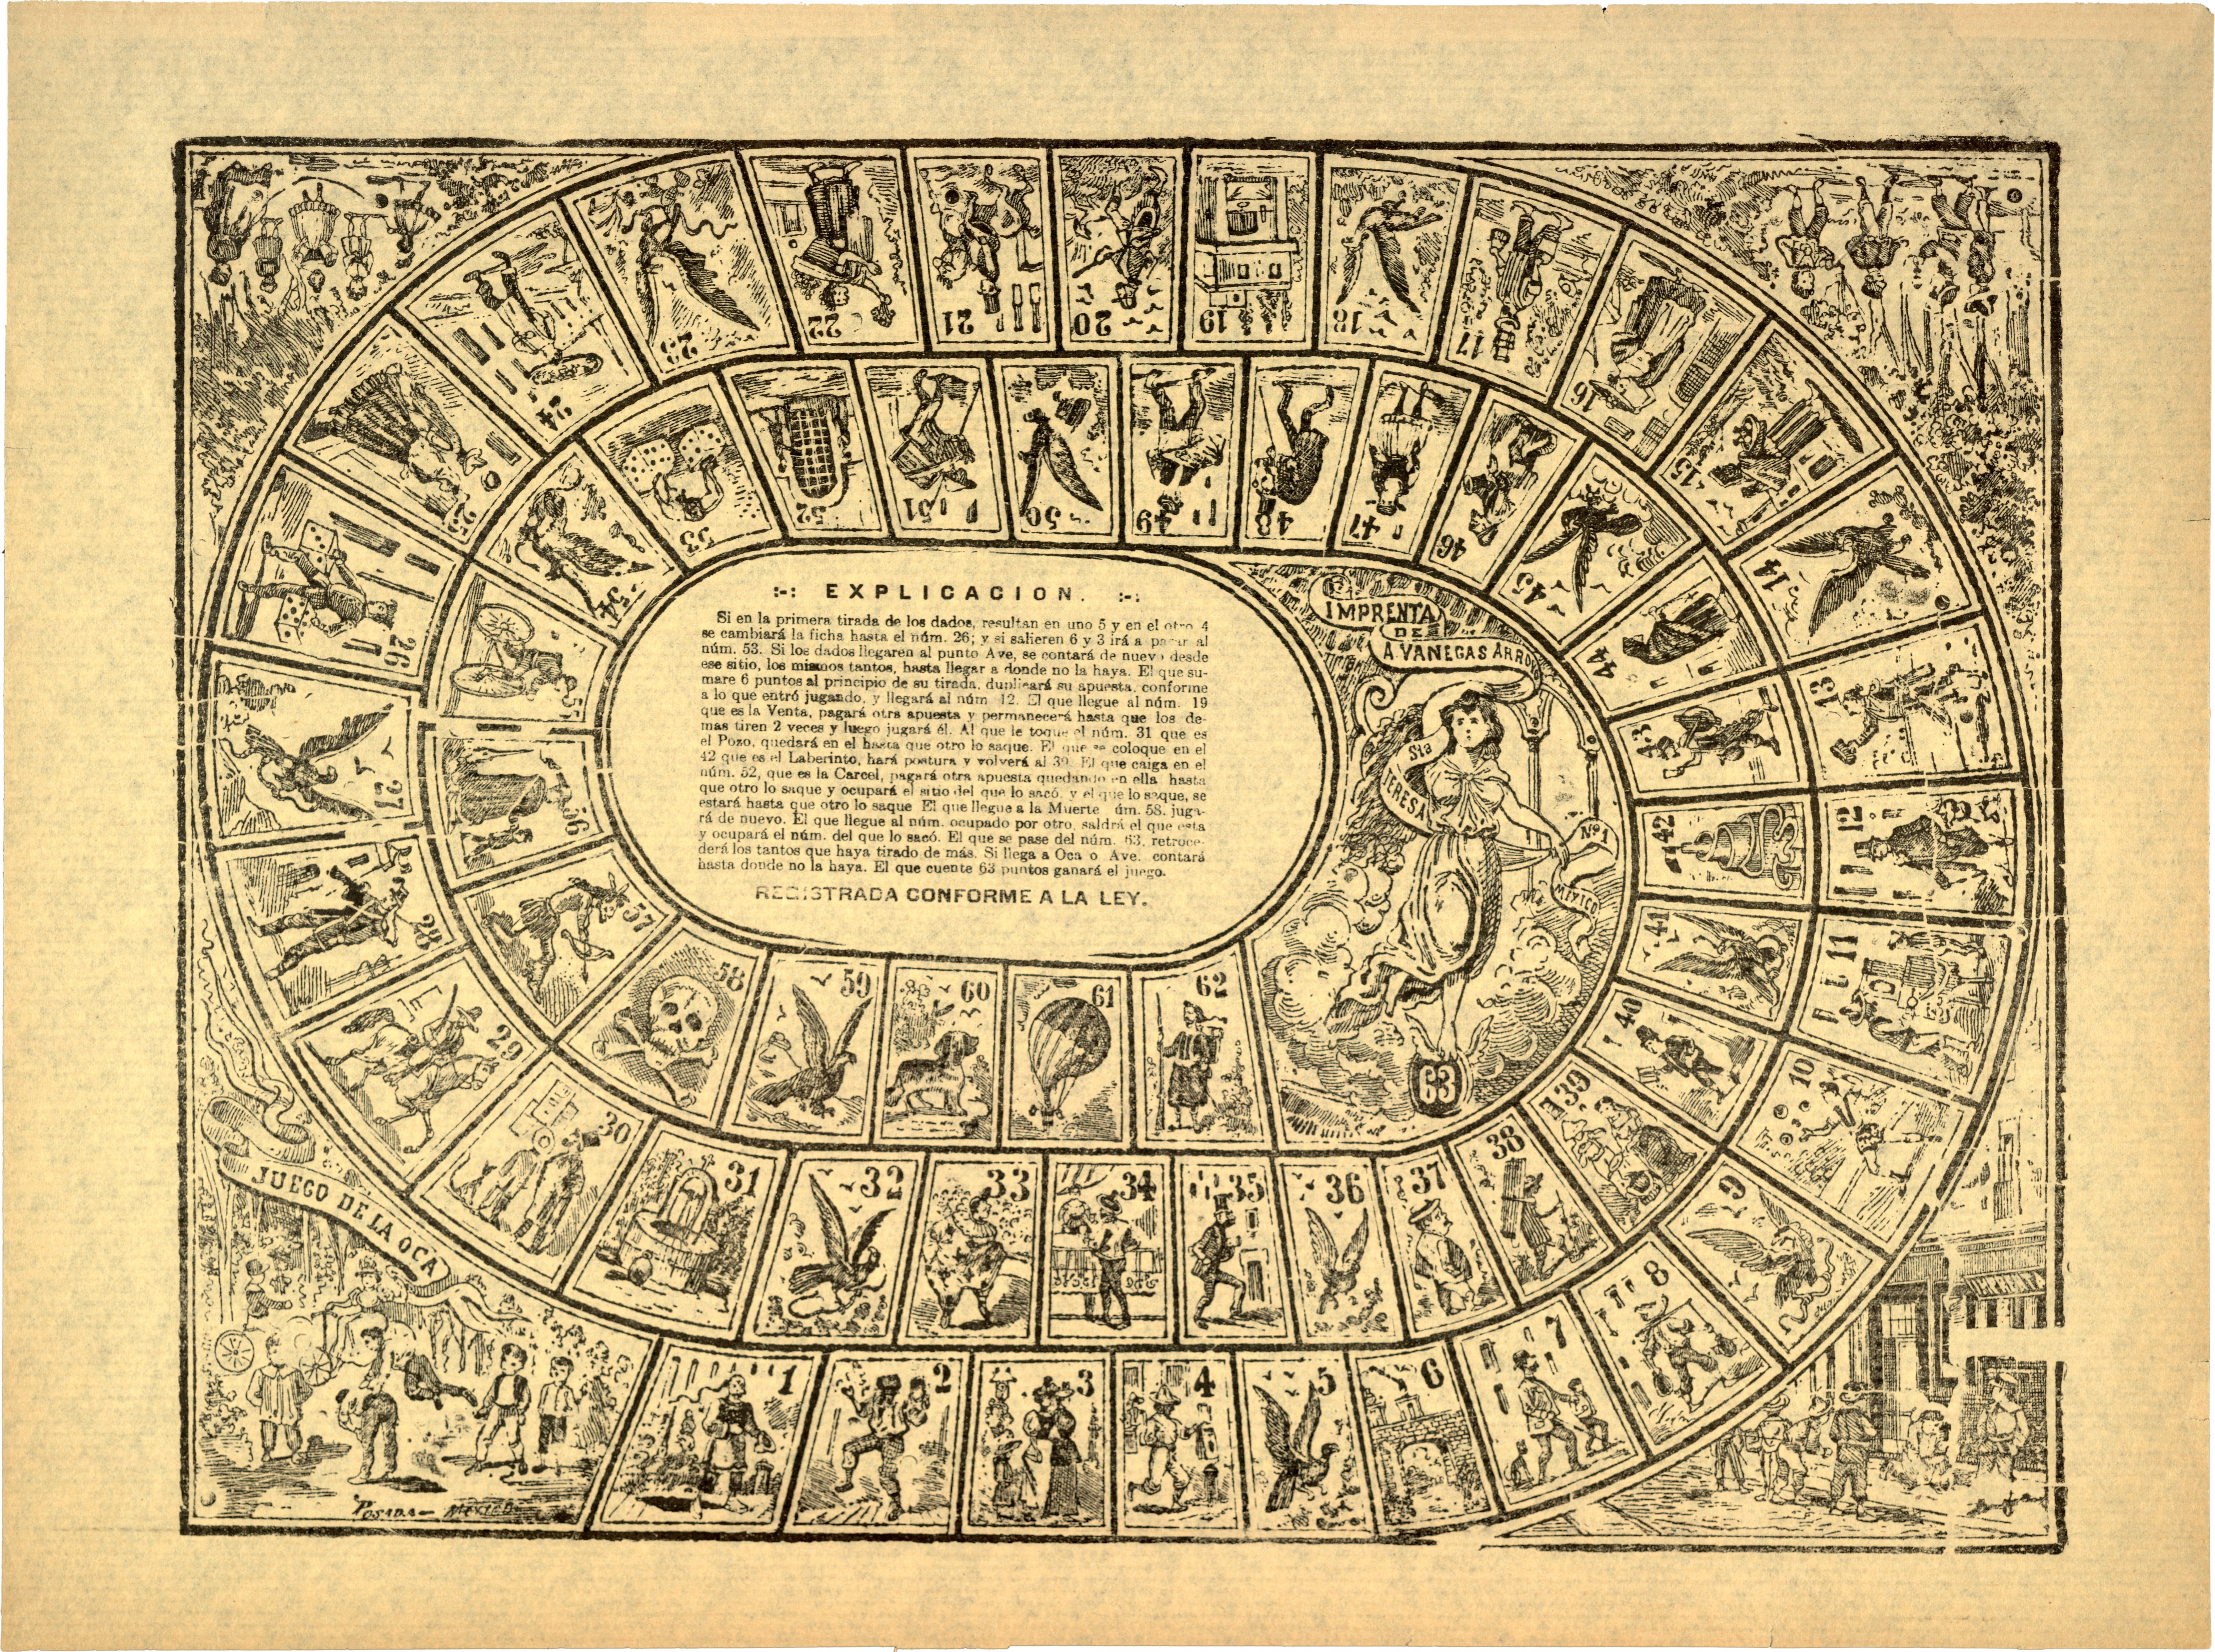 :-: EXPLICACION. :-:
Si en la primera tirada de los dados, resultan en uno 5 y en el otro 4
se cambiará la ficha hasta el núm. 26; y si salieren 6 y 3 irá a parar al
núm. 53. Si los dados llegaren al punto Ave, se contará de nuevo desde
ese sitio, los mismos tantos, hasta llegar a donde no la haya. El que su-
mare 6 puntos al principio de su tirada, duplicará su apuesta, conforme
a lo que entró jugando, y llegará al núm 12. El que llegue al núm. 19
que es la Venta, pagará otra apuesta y permanecerá hasta que los de-
mas tiren 2 veces y luego jugará él. Al que le toque el núm. 31 que es
el Pozo, quedará en el hasta que otro lo saque. El que se coloque en el
42 que es el Laberinto, hará postura y volverá al 30. El que caiga en el
núm. 52, que es la Carcel, pagará otra apuesta quedando en ella hasta
que otro lo saque y ocupará el sitio del que lo sacó, y el que lo saque, se
estará hasta que otro lo saque El que llegue a la Muerte úm. 58, juga-
rá de nuevo. El que llegue al núm. ocupado por otro, saldrá el que esta
y ocupará el núm. del que lo sacó. El que se pase del núm. 63, retroce-
derá los tantos que haya tirado de más. Si llega a Oca o Ave, contará
hasta donde no la haya. El que cuente 63 puntos ganará el juego.
REGISTRADA CONFORME A LA LEY.
IMPRENTA
DE
A VANEGAS ARROYO
Sta
TERESA
Nº 1
MEXICO
JUEGO DE LA OCA
POSADA — MEXICO
1
2
3
4
5
6
7
8
9
10
11
12
13
14
15
16
17
18
19
20
21
22
23
24
25
26
27
28
29
30
31
32
33
34
35
36
37
38
39
40
41
42
43
44
45
46
47
48
49
50
51
52
53
54
55
56
57
58
59
60
61
62
63